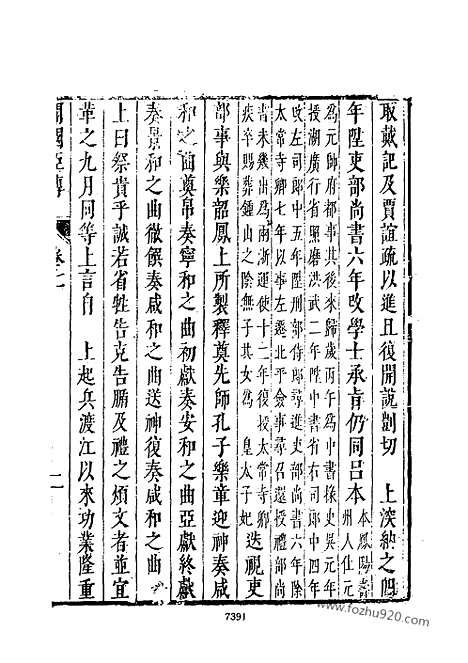 取戴記及賈誼疏以進且復開說剴切　上深納之四
年陞吏部尚書六年改學士承旨仍同呂本
本鳳陽壽
州人仕元
為元帥府都事其後來歸歲丙午為中書掾史吳元年
授湖廣行省照磨洪武二年陞中書省右司郎中四年
改左司郎中五年陞刑部侍郎尋進吏部尚書六年除
太常寺卿七年以事左遷北平僉事尋召還授禮部尚
書未幾出為兩浙運使十二年復授太常寺卿
疾卒賜葬鍾山之陰無子其女為　皇太子妃
迭視吏
部事與樂韶鳳上所製釋奠先師孔子樂章迎神奏咸
和之曲奠帛奏寧和之曲初獻奏安和之曲亞獻終獻
奏景和之曲徹饌奏咸和之曲送神復奏咸和之曲
上曰祭貴乎誠若省牲告克告腯及禮之煩文者並宜
革之九月同等上言自　上起兵渡江以來功業隆重
開國臣傳
卷七
二
7391
www.fozhu920.com